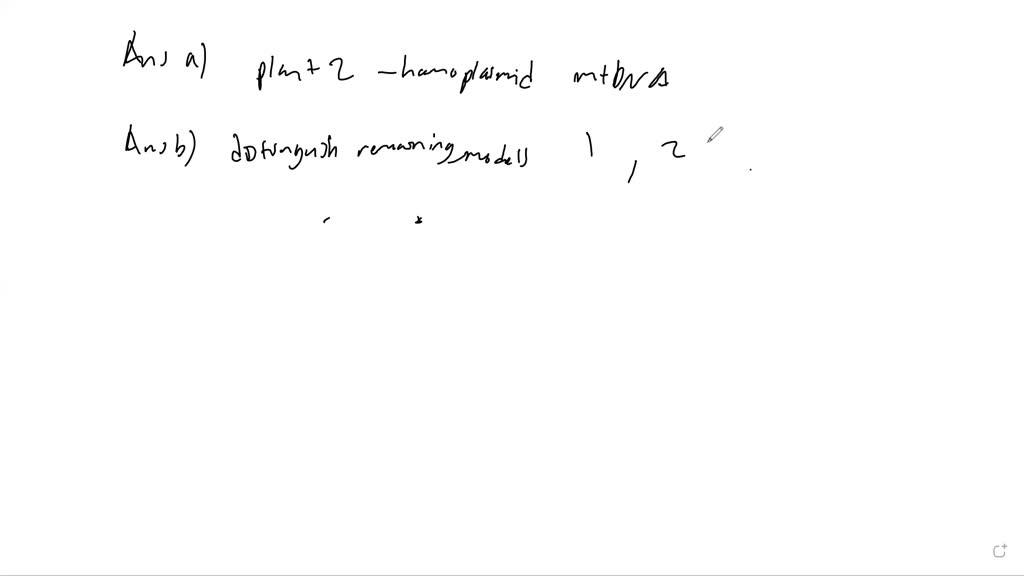 Ans a) plant 2 - homoplasmid mtDNA
Ans b) distinguish remaining models 1, 2